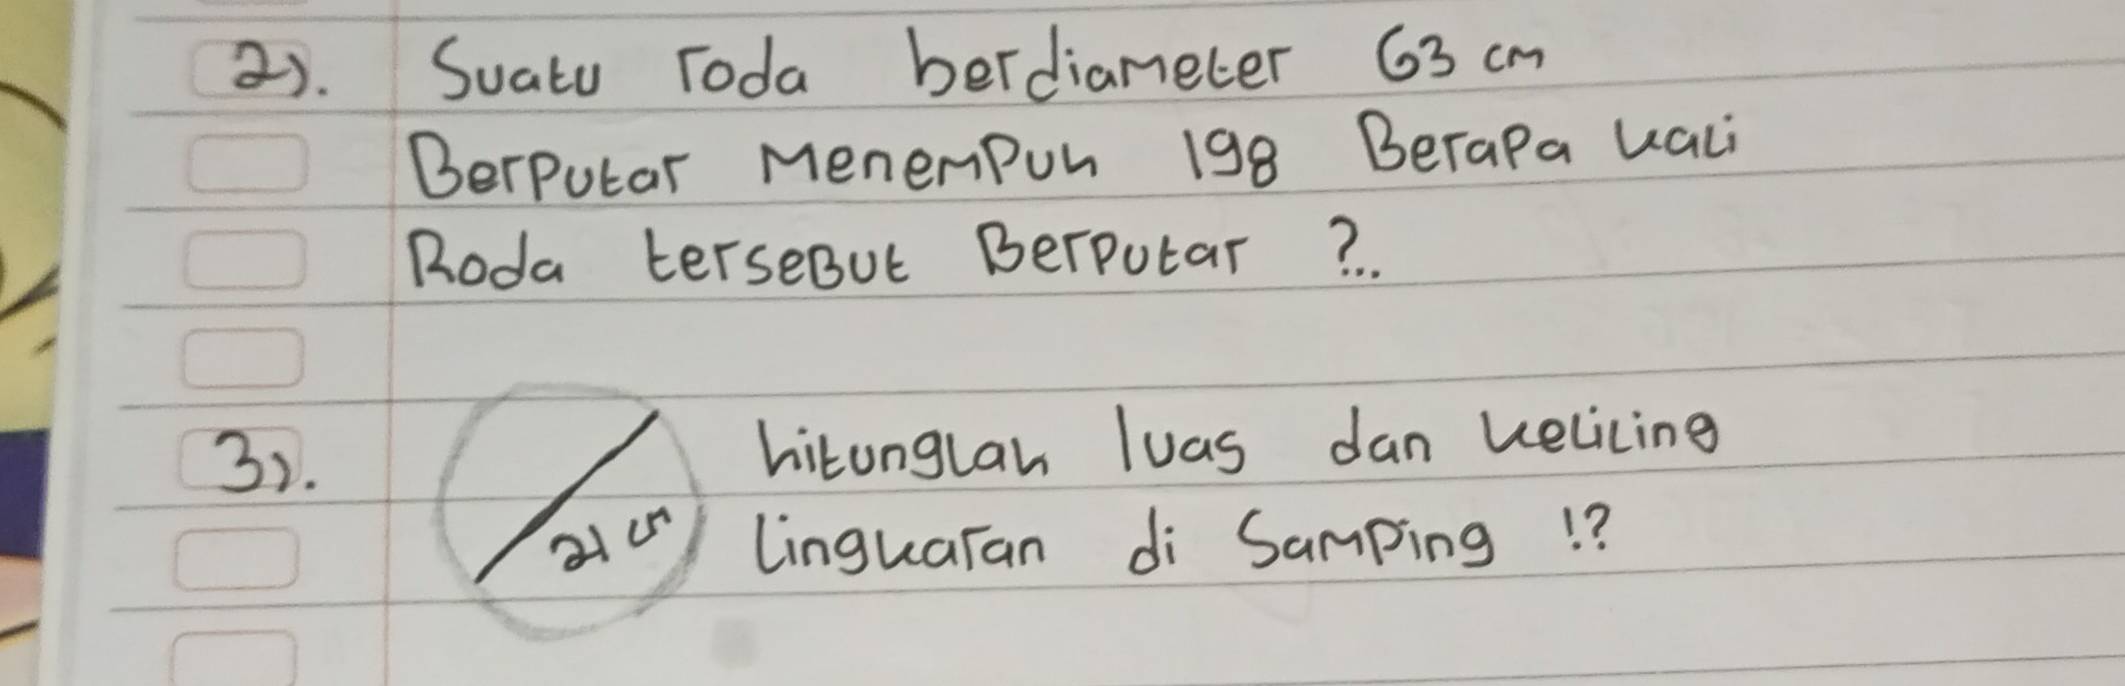 2). Suatu roda berdiameter 63 cm
Berputar Menempuh 198 Berapa kali
Roda tersebut Berputar ?...
3). hitunglah luas dan keliling
21 cm lingkaran di Samping !?